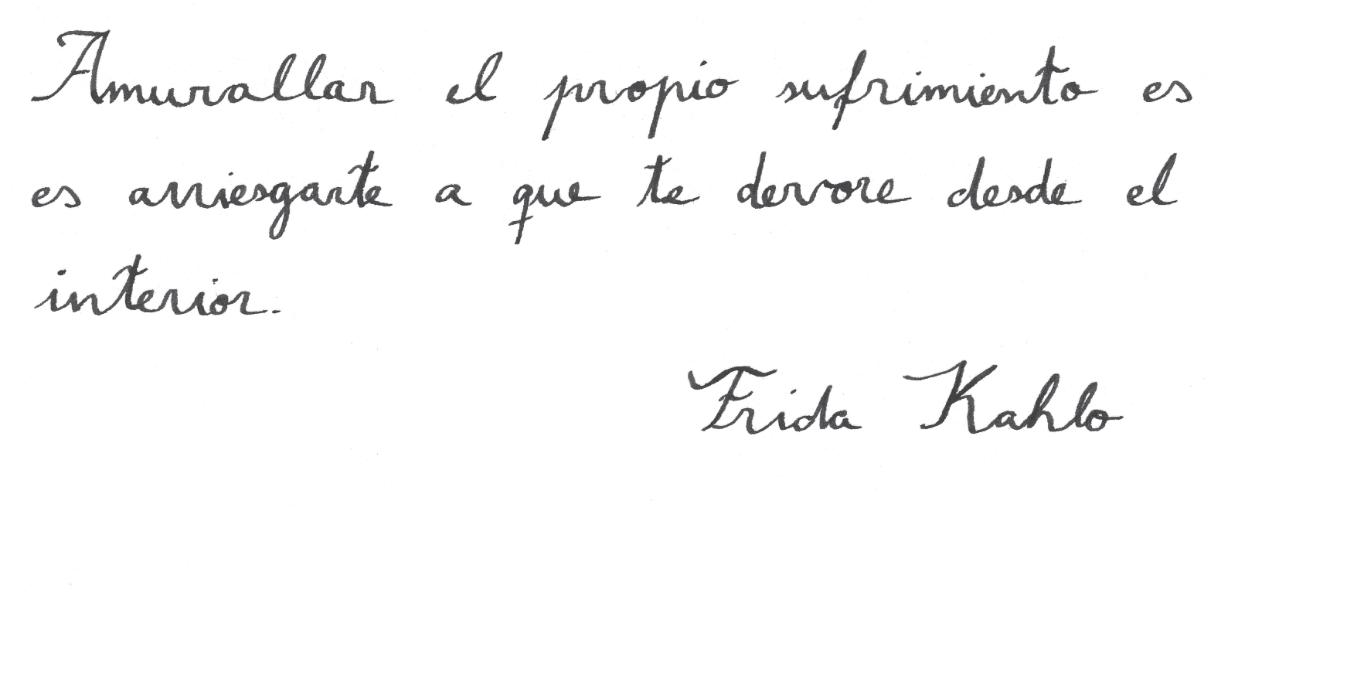 Amurallar el propio sufrimiento es
es arriesgarte a que te devore desde el
interior.
Frida Kahlo